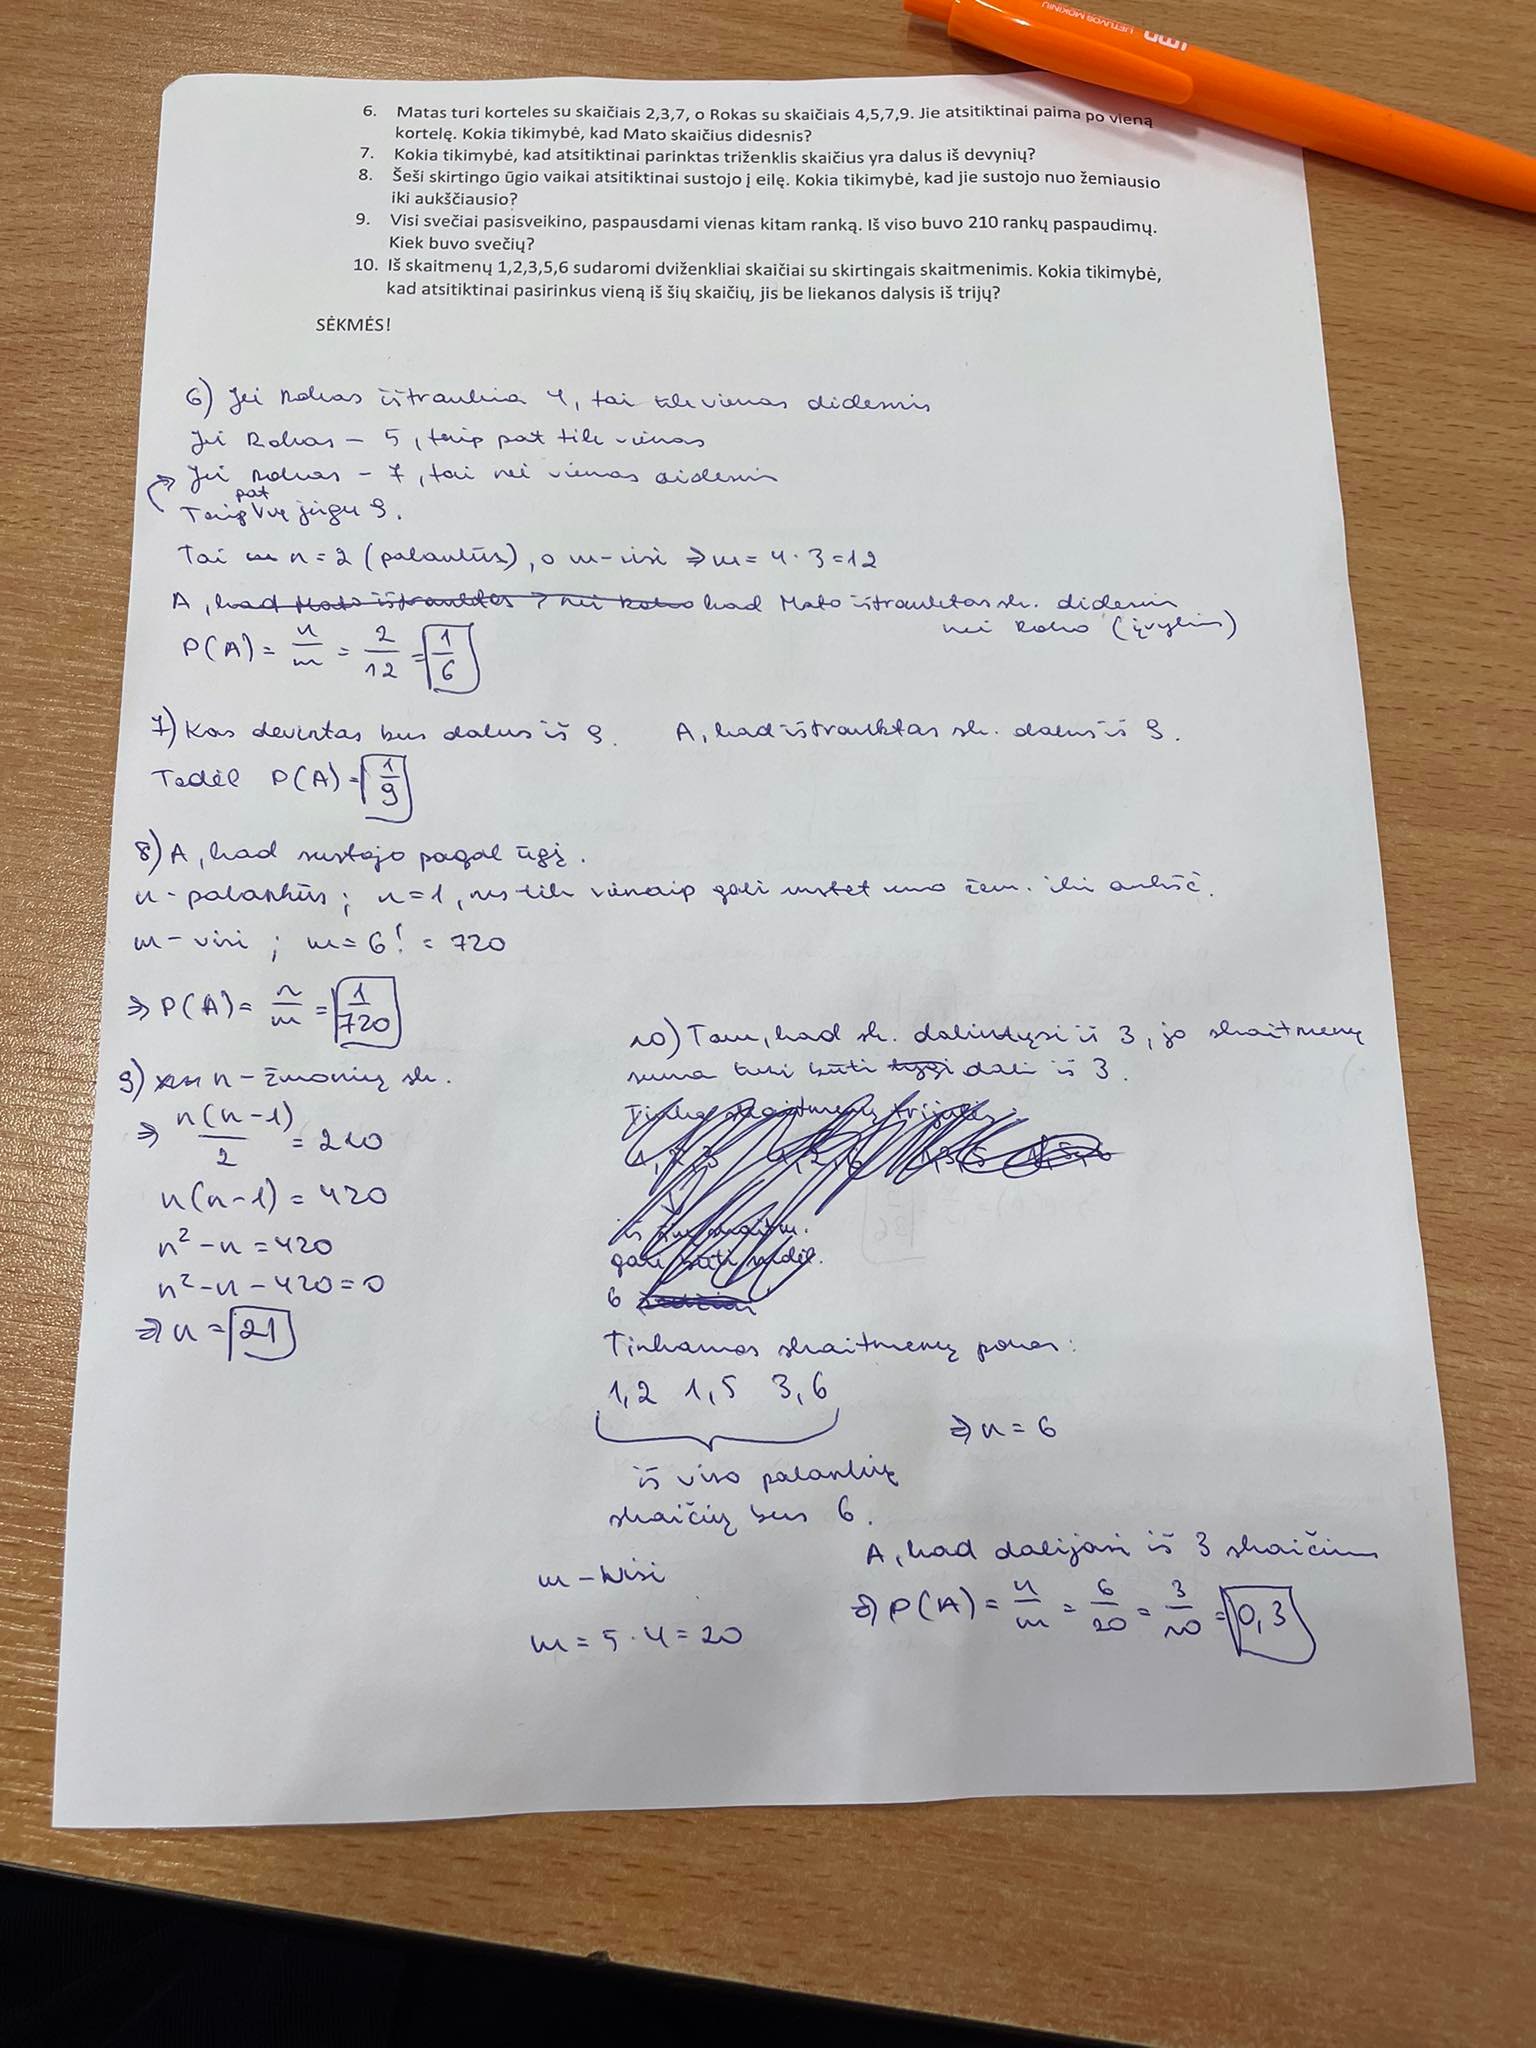 LIETUVOS MOKINIŲ
6. Matas turi korteles su skaičiais 2,3,7, o Rokas su skaičiais 4,5,7,9. Jie atsitiktinai paima po vieną
kortelę. Kokia tikimybė, kad Mato skaičius didesnis?
7. Kokia tikimybė, kad atsitiktinai parinktas triženklis skaičius yra dalus iš devynių?
8. Šeši skirtingo ūgio vaikai atsitiktinai sustojo į eilę. Kokia tikimybė, kad jie sustojo nuo žemiausio
iki aukščiausio?
9. Visi svečiai pasisveikino, paspausdami vienas kitam ranką. Iš viso buvo 210 rankų paspaudimų.
Kiek buvo svečių?
10. Iš skaitmenų 1,2,3,5,6 sudaromi dviženkliai skaičiai su skirtingais skaitmenimis. Kokia tikimybė,
kad atsitiktinai pasirinkus vieną iš šių skaičių, jis be liekanos dalysis iš trijų?
SĖKMĖS!
6) Jei Rokas ištraukia 4, tai tik vienas didesnis
Jei Rokas – 5, taip pat tik vienas
Jei Rokas – 7, tai nei vienas didesnis
Taip pat jeigu 9.
Tai n = 2 (palankūs), o m – visi ⇒ m = 4 · 3 = 12
A, kad Mato ištrauktas sk. didesnis
nei Roko (įvykis)
P(A) = n/m = 2/12 = 1/6
7) Kas devintas bus dalus iš 9. A, kad ištrauktas sk. dalus iš 9.
Todėl P(A) = 1/9
8) A, kad sustojo pagal ūgį.
n - palankūs; n = 1, nes tik vienaip gali sustot nuo žem. iki aukšč.
m – visi ; m = 6! = 720
⇒ P(A) = n/m = 1/720
9) n – žmonių sk.
⇒ n(n-1)/2 = 210
n(n-1) = 420
n² - n = 420
n² - n - 420 = 0
⇒ n = 21
10) Tam, kad sk. dalintųsi iš 3, jo skaitmenų
suma turi būti dali iš 3.
6
Tinkamos skaitmenų poros:
1,2 1,5 3,6
⇒ n = 6
iš viso palankių
skaičių bus 6.
m – visi
m = 5 · 4 = 20
A, kad dalijasi iš 3 skaičius
⇒ P(A) = n/m = 6/20 = 3/10 = 0,3